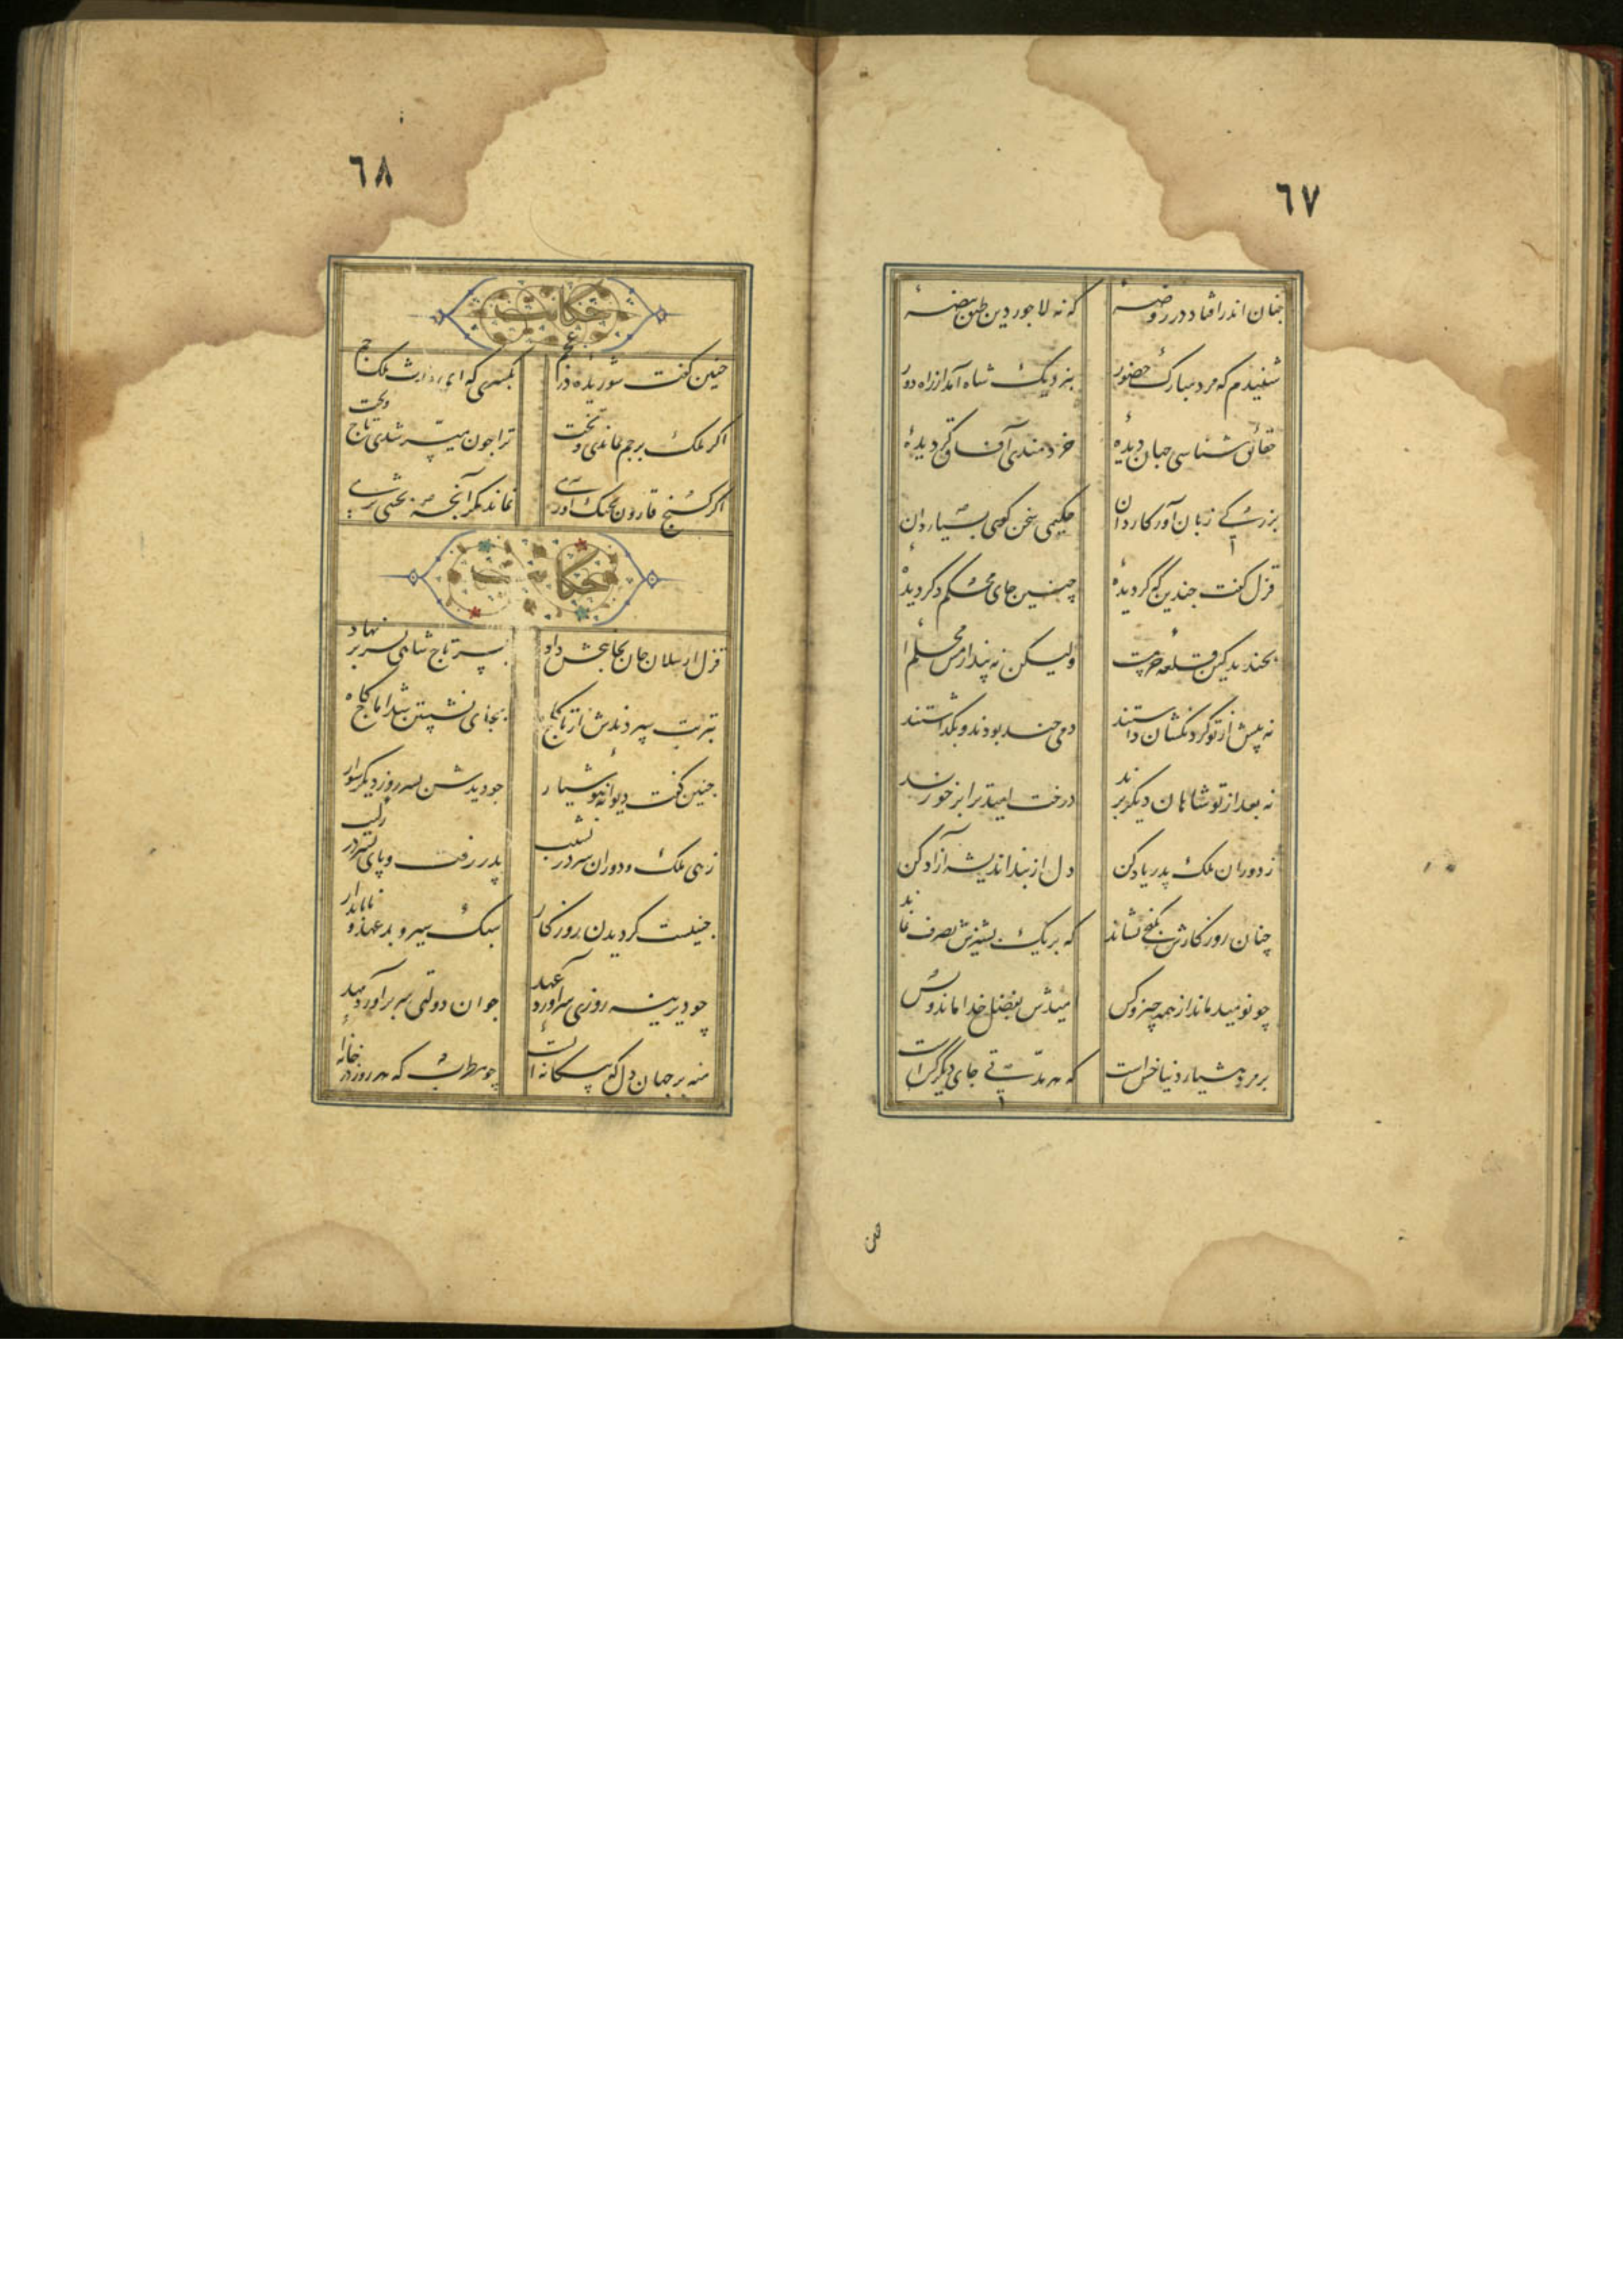 ٦٧
چنان اندر افتاده در روضهٔ که نه لاجوردین طبق بیضهٔ
شنیدم که مرد مبارک حضور بنزدیک شاه آمد از راه دور
حقائق شناسی جهان دیدهٔ خردمندی آفاق گردیدهٔ
بزرگی زبان آور کاردان حکیمی سخن گوی بسیار دان
قزل گفت چندین که گردیدهٔ چنین جای محکم دگر دیدهٔ
بخندید کین قلعه خرمست ولیکن نه پندارمش محکم است
نه پیش از تو گردنکشان داشتند دمی چند بودند و بگذاشتند
نه بعد از تو شاهان دیگر برند درخت امید ترا بر خورند
ز دوران ملک پدر یاد کن دل از بند اندیشه آزاد کن
چنان روزگارش بکنجی نشاند که بر یک پشیزش تصرف نماند
چو نومید ماند از همه چیز و کس امیدش بفضل خدا ماند و بس
بر مرد هشیار دنیا خس است که هر مدتی جای دیگر کس است
٦٨
حکایت
چنین گفت شوریدهٔ در عجم بکسری که ای وارث ملک جم
اگر ملک بر جم بماندی و تخت ترا چون میسر شدی تاج و تخت
اگر گنج قارون بچنگ آوری نماند مگر آنچه بخشی بری
حکایت
قزل ارسلان جان بجان بخش داد پسر تاج شاهی بسر بر نهاد
بتربت سپردندش از تاجگاه بجای نشستن بشد آماجگاه
چنین گفت دیوانهٔ هوشیار چو دیدش پسر روز دیگر سوار
زهی ملک و دوران سر در نشیب پدر رفت و پای پسر در رکیب
چنینست گردیدن روزگار سبک سیر و بدعهد و ناپایدار
چو دیرینه روزی سرآورد عهد جوان دولتی سر برآورد ز مهد
منه بر جهان دل که بیگانه ایست چو مطرب که هر روز در خانهٔ